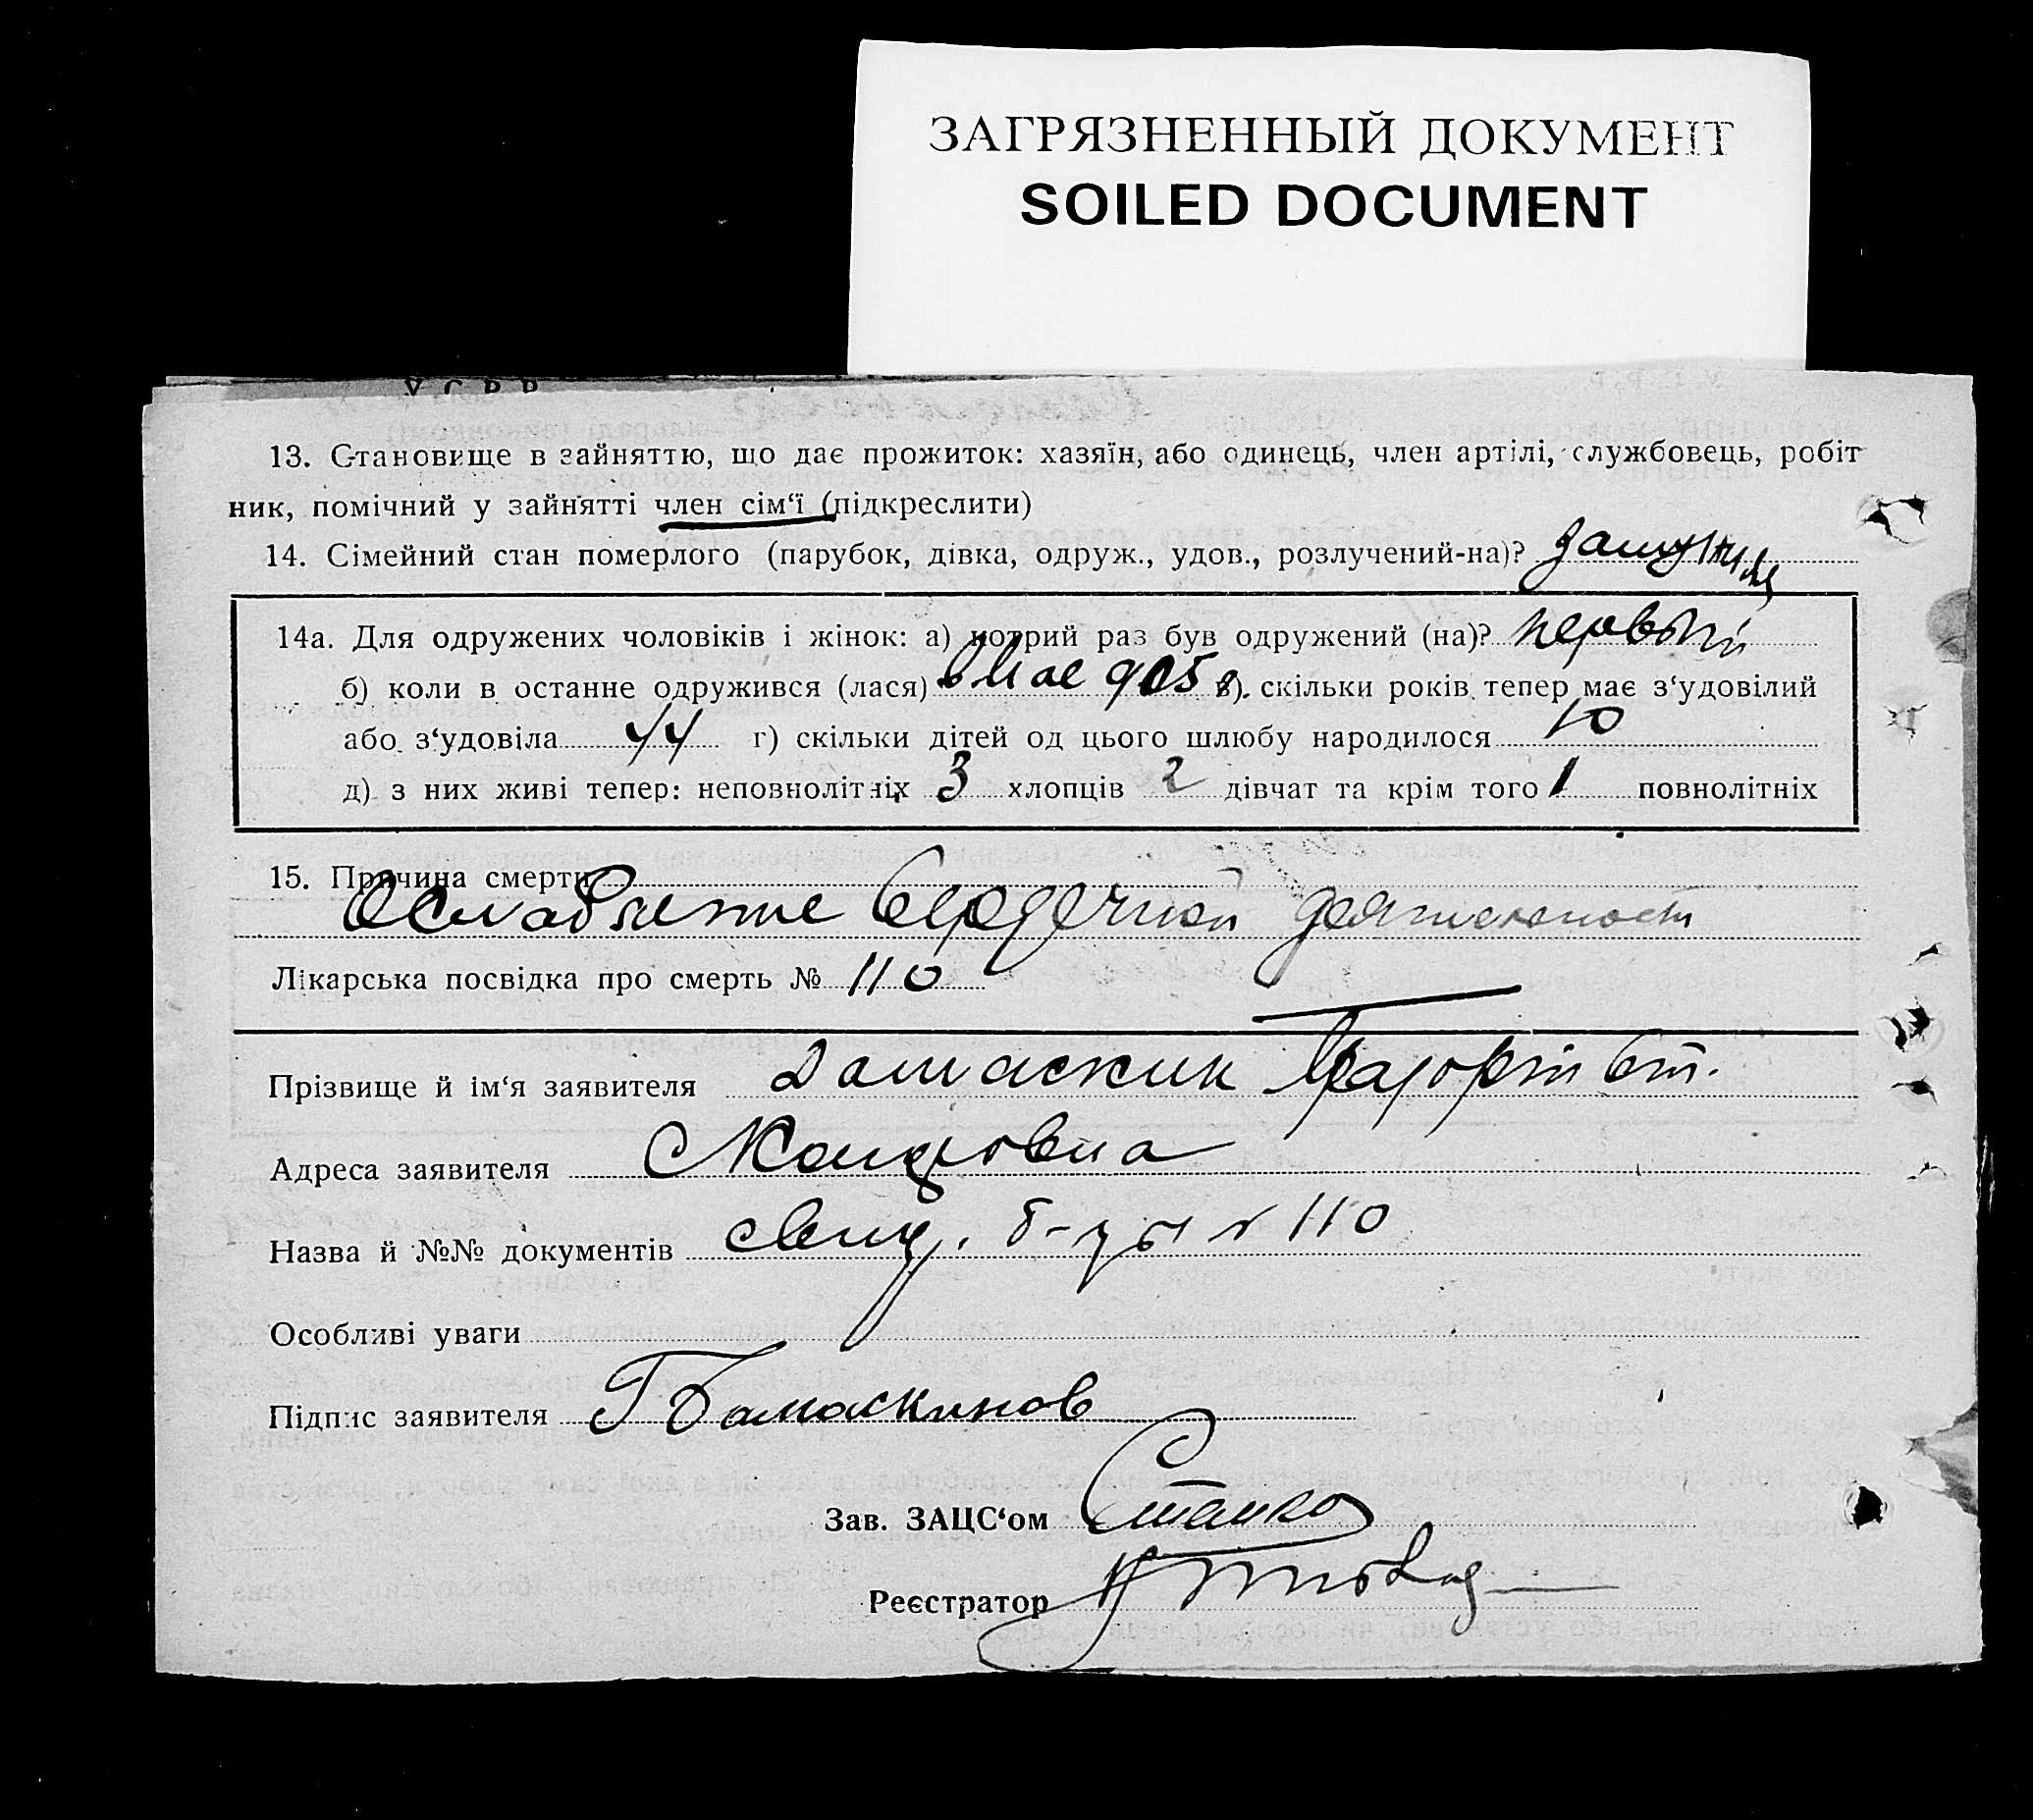 ЗАГРЯЗНЕННЫЙ ДОКУМЕНТ
SOILED DOCUMENT
У С Р Р
13. Становище в зайняттю, що дає прожиток: хазяїн, або одинець, член артілі, службовець, робіт
ник, помічний у зайнятті член сім‘ї (підкреслити)
14. Сімейний стан померлого (парубок, дівка, одруж., удов., розлучений-на)? замужняя
14а. Для одружених чоловіків і жінок: а) котрий раз був одружений (на)? первый
б) коли в останне одружився (лася) в мае 905 в). скільки років тепер має з‘удовілий
або з‘удовіла 44 г) скільки дітей од цього шлюбу народилося 10
д) з них живі тепер: неповнолітніх 3 хлопців 2 дівчат та крім того 1 повнолітніх
15. Причина смерти
Ослабление Сердечной деятельност
Лікарська посвідка про смерть № 110
Прізвище й ім‘я заявителя Дамаскин
Адреса заявителя
Назва й №№ документів свид. б-цы № 110
Особливі уваги
Підпис заявителя Г Дамаскинов
Зав. ЗАЦС‘ом
Реєстратор